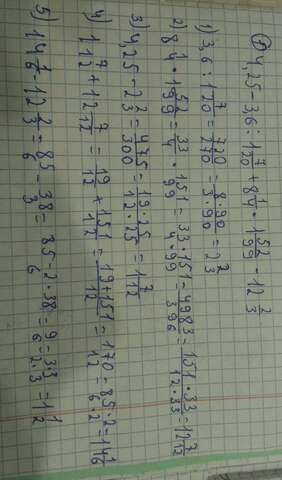 ① 4,25 - 3,6 : 1 7/20 + 8 1/4 · 1 52/99 - 12 2/3
1) 3,6 : 1 7/20 = 720/270 = 8·90/3·90 = 2 2/3
2) 8 1/4 · 1 52/99 = 33/4 · 151/99 = 33·151/4·99 = 4983/396 = 151·33/12·33 = 12 7/12
3) 4,25 - 2 2/3 = 475/300 = 19·25/12·25 = 1 7/12
4) 1 7/12 + 12 7/12 = 19/12 + 151/12 = 19+151/12 = 170/12 = 85·2/6·2 = 14 1/6
5) 14 1/6 - 12 2/3 = 85/6 - 38/3 = 85-2·38/6 = 9/6 = 3·3/2·3 = 1 1/2